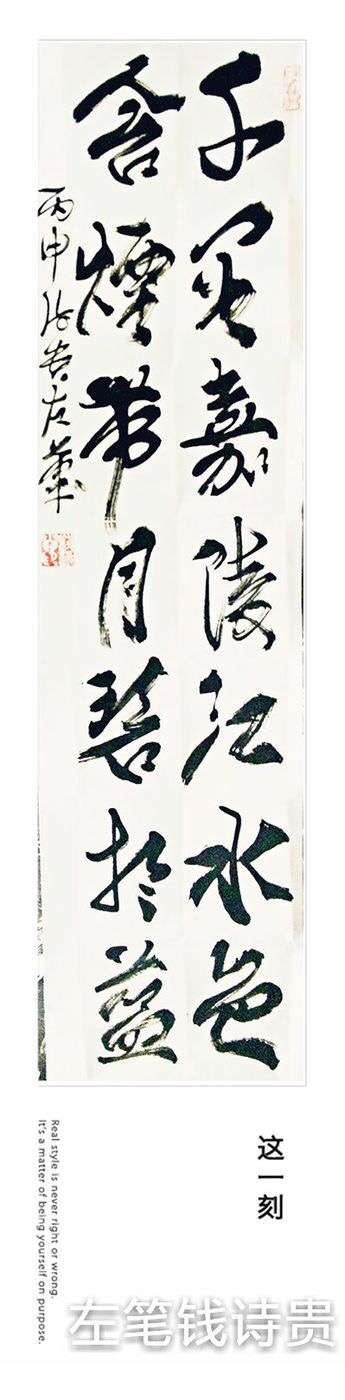 千里嘉陵江水色
含煙帶月碧於藍
丙申 左筆
这一刻
Real style is never right or wrong.
It's a matter of being yourself on purpose.
左笔钱诗贵